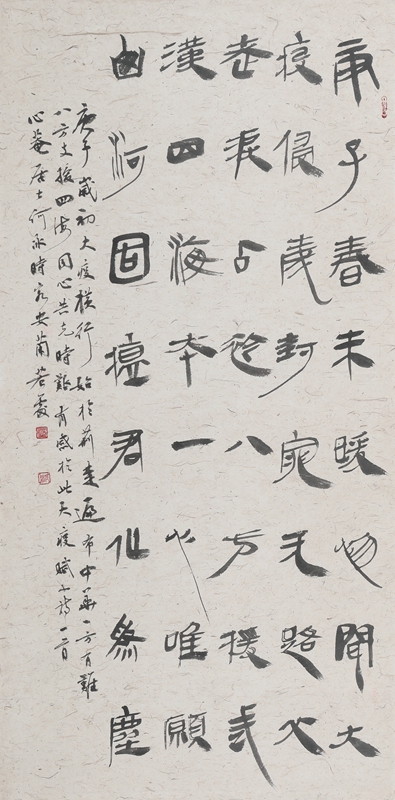 庚子春未暖忽聞大
疫侵封无路
八方援武
漢四海本一心唯願
河固瘟君化為塵
庚子歲初大疫橫行始於荊楚遍布中華一方有難
八方支援四海同心共克時艱有感於此天疫賦小詩一首
心菴居士何永時客安蘭若